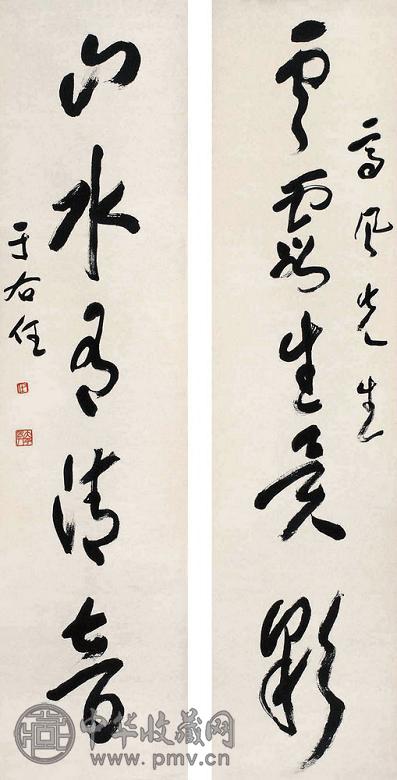 高風先生
雲霞生異彩
山水有清音
于右任
中华收藏网
www.pmv.cn